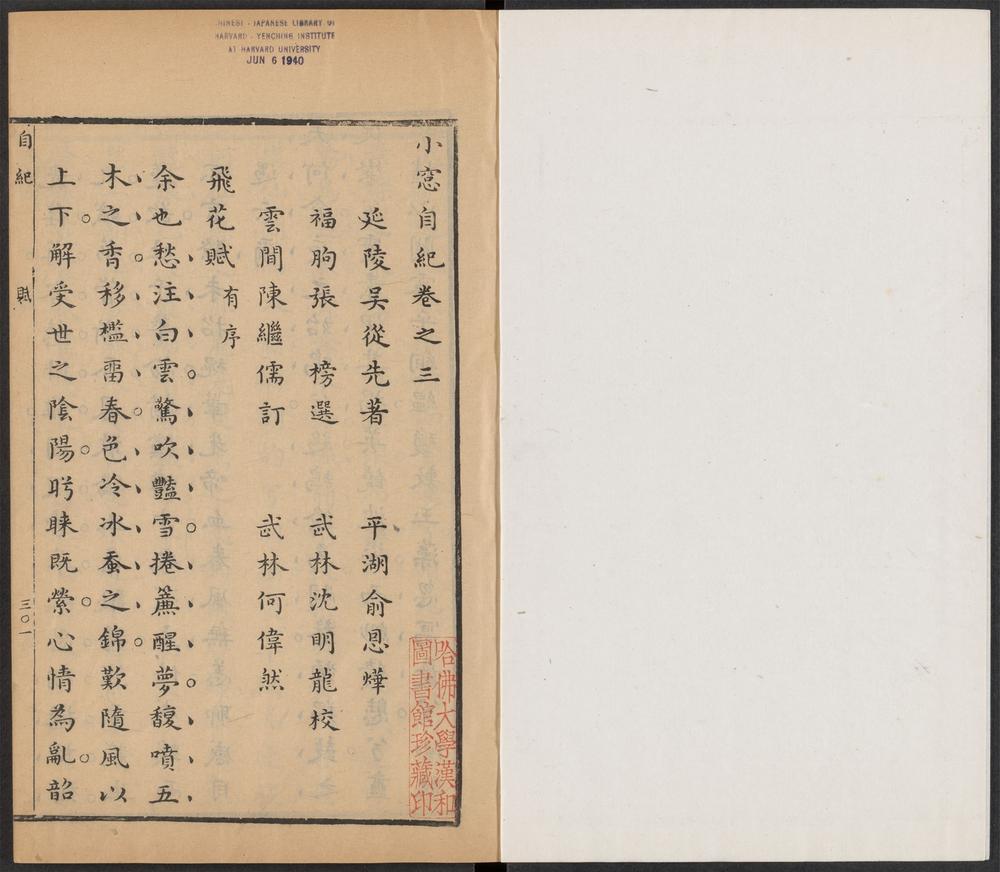 CHINESE - JAPANESE LIBRARY OF
HARVARD - YENCHING INSTITUTE
AT HARVARD UNIVERSITY
JUN 6 1940
小窓自紀卷之三
延陵吴從先著 平湖俞恩燁
福朐張 榜選 武林沈明龍校
雲間陳繼儒訂 武林何偉然
飛花賦有序
余也愁、注白雲。驚吹豔雪。捲簾醒夢。馥噴五
木之香。移檻畱春。色冷冰蚕之錦。歎隨風以
上下。解受世之陰陽。眄睞既縈。心情為亂。韶
自紀 賦 三〇一
哈佛大學漢和
圖書館珍藏印